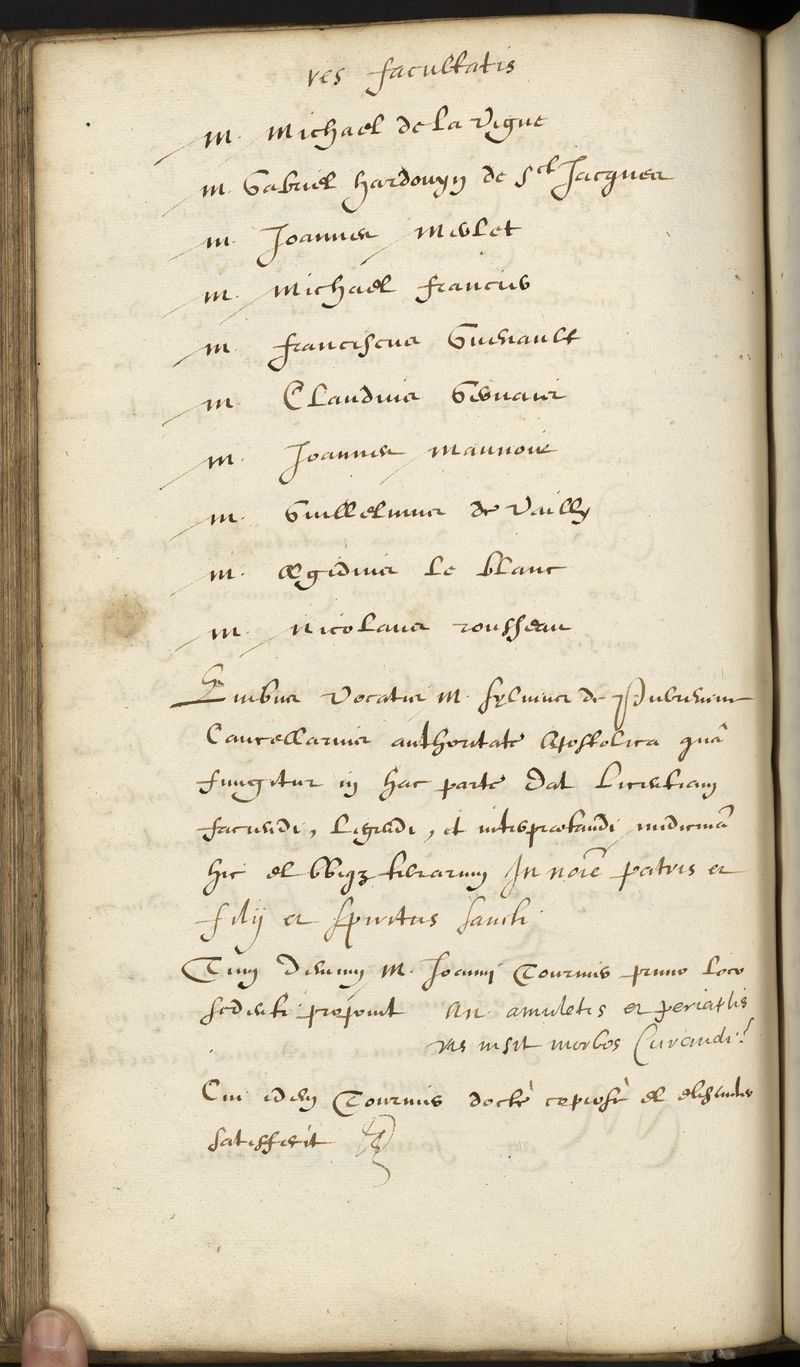 res facultatis
M. Michael de la Vigne
M. Gabriel Hardouyn de Sct Jacques
M. Joannes Merlet
M. Michael
M. Franciscus Guenault
M. Claudius Gervais
M. Joannes Mauvoie
M. Guillelmus de Vailly
M. Ægidius le Blanc
M. Nicolaus Rousseau
Quibus vocatis M. Sylvius de
Cancellarius authoritate Apostolica quâ
fungitur in hac parte dat licentiam
faciendi, legendi, et interpretandi medicinā
hic et ubiqȝ terrarum In noīe patris et
filij et spiritus sancti.
Tum demum M. Joanni Tournis primo loco
sedenti proponit An amuletis et periaptis
vis insit morbos curandi?
Cui idem Tournis doctè copiosè et eleganter
satisfecit